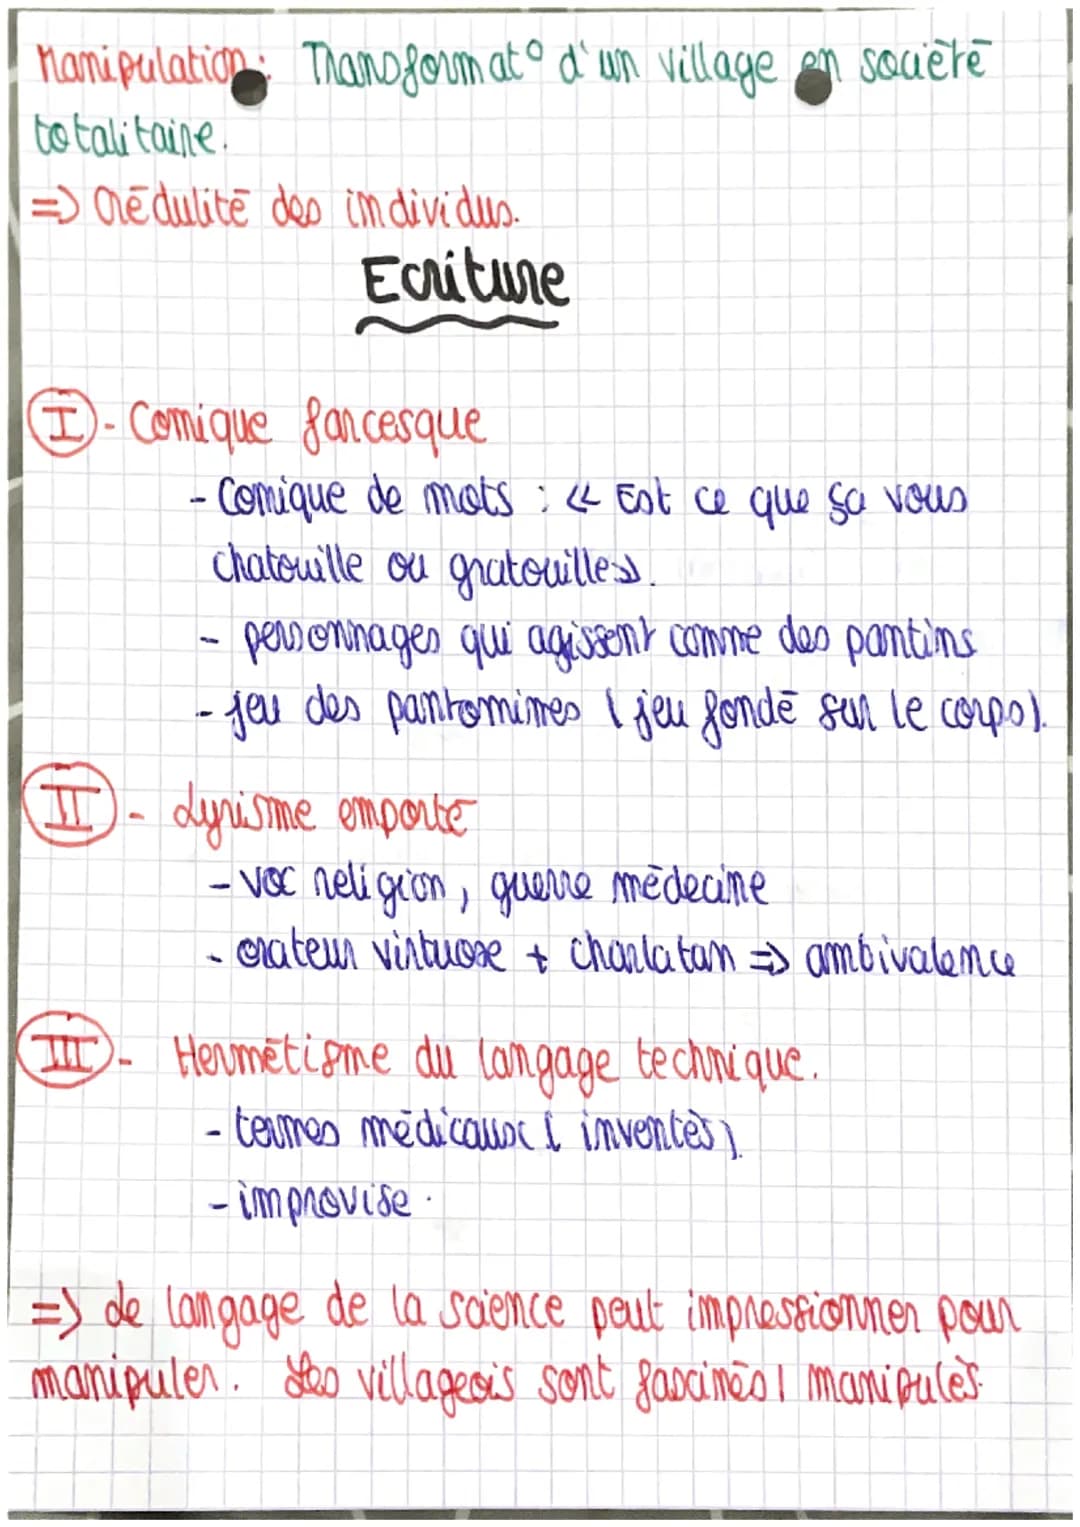 Manipulation : Transformat° d'un village en société
totalitaire.
=> crédulité des individus.
Ecriture
I - Comique farcesque
- Comique de mots : « Est ce que ça vous
chatouille ou gratouille».
- personnages qui agissent comme des pantins
- jeu des pantomimes (jeu fondé sur le corps).
II - Lyrisme emporté
- voc religion, guerre médecine
- orateur virtuose + charlatan => ambivalence
III - Hermétisme du langage technique.
- termes médicaux (inventés).
- improvise.
=> de langage de la science peut impressionner pour
manipuler. Les villageois sont fascinés / manipulés.